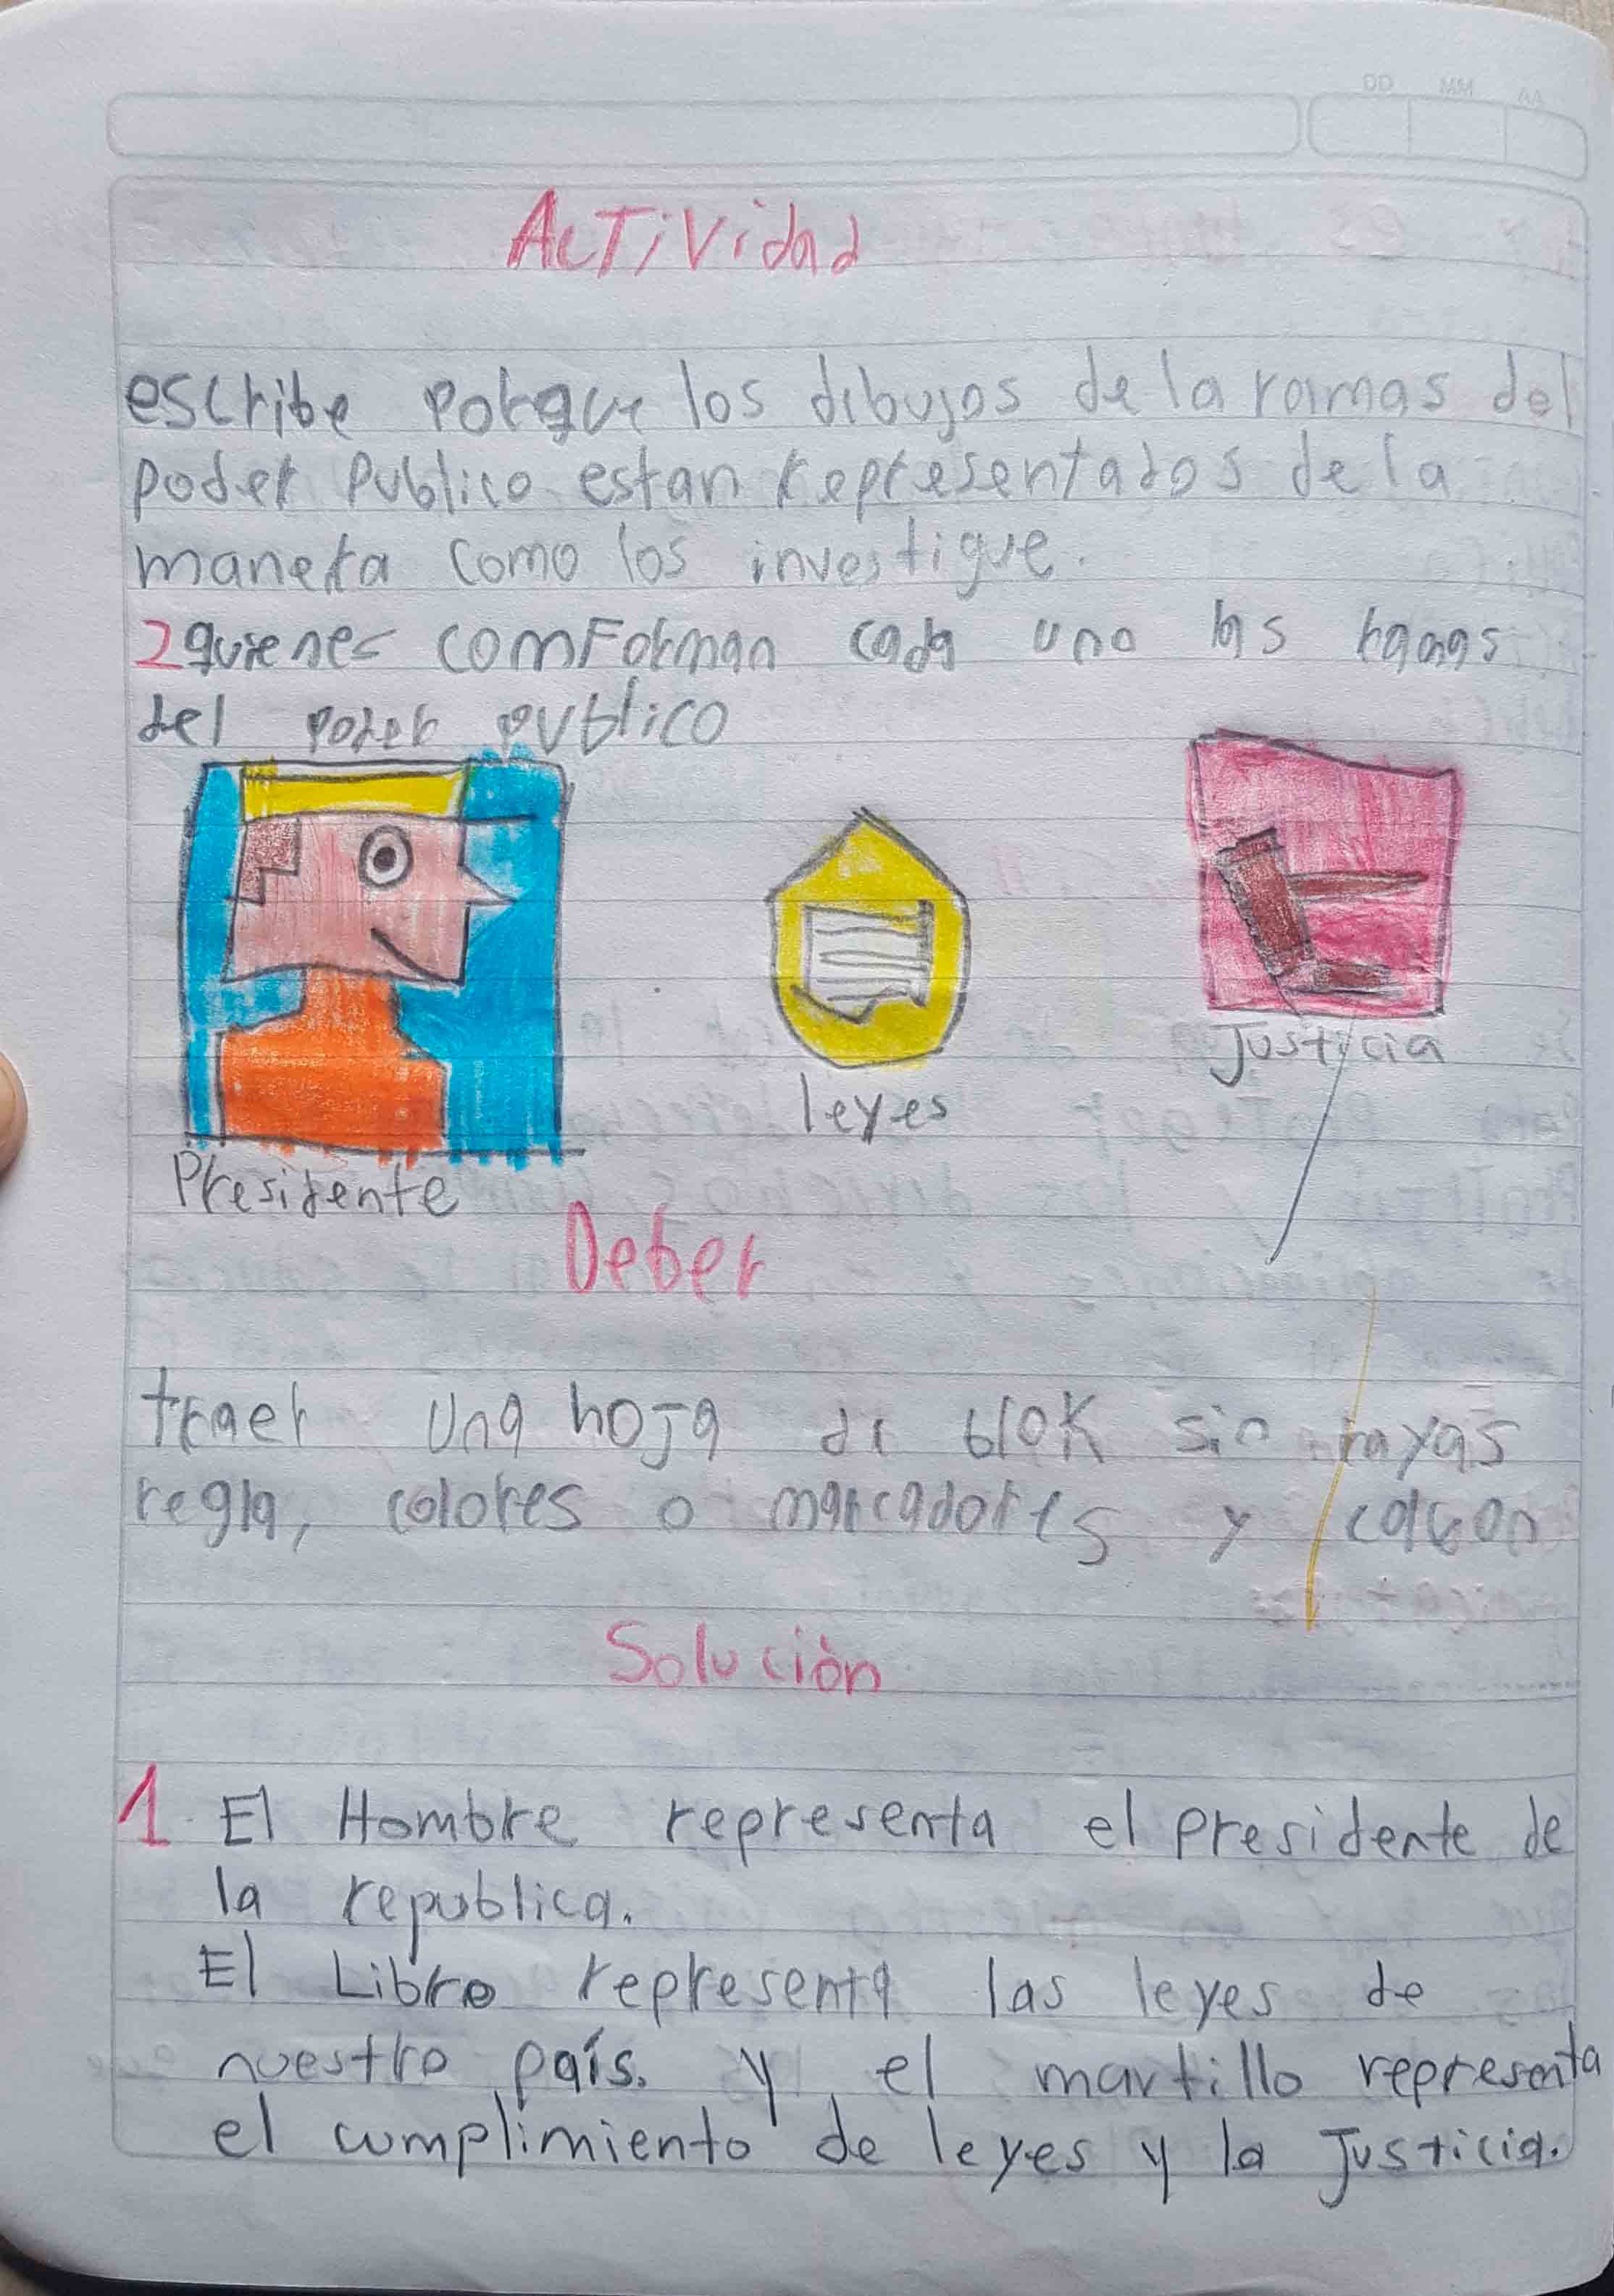 DD MM AA
Actividad
escribe porque los dibujos de la ramas del
poder Publico estan representados de la
manera como los investigue.
2 quienes comForman cada uno las ramas
del poder publico
Presidente
leyes
Justicia
Deber
traer una hoja de blok sin rayas
regla, colores o marcadores y colbon
Solución
1. El Hombre representa el presidente de
la republica.
El Libro representa las leyes de
nuestro país. y el martillo representa
el cumplimiento de leyes y la Justicia.